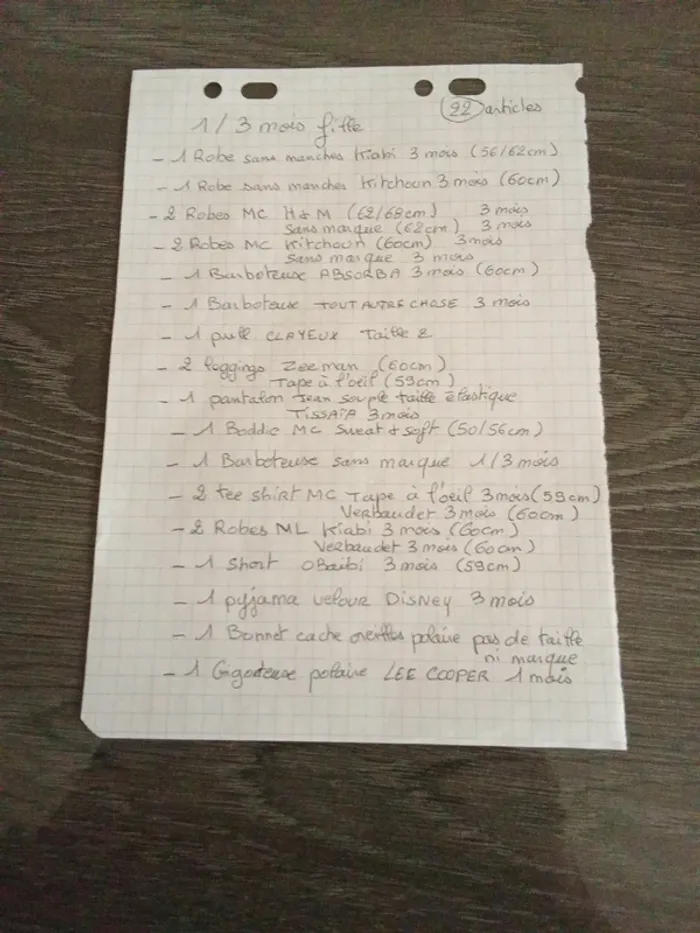 22 articles
1/3 mois fille
- 1 Robe sans manches Kiabi 3 mois (56/62cm)
- 1 Robe sans manches Kitchoun 3 mois (60cm)
- 2 Robes MC H&M (62/68cm) 3 mois
sans marque (62cm) 3 mois
- 2 Robes MC Kitchoun (60cm) 3 mois
sans marque 3 mois
- 1 Barboteuse ABSORBA 3 mois (60cm)
- 1 Barboteuse TOUT AUTRE CHOSE 3 mois
- 1 pull CLAYEUX Taille 2
- 2 leggings Zeeman (60cm)
Tape à l'oeil (59cm)
- 1 pantalon Jean souple taille élastique
TISSAÏA 3 mois
- 1 Boddie MC Sweat & soft (50/56cm)
- 1 Barboteuse sans marque 1/3 mois
- 2 tee shirt MC Tape à l'oeil 3 mois (59cm)
Verbaudet 3 mois (60cm)
- 2 Robes ML Kiabi 3 mois (60cm)
Verbaudet 3 mois (60cm)
- 1 Short OBaibi 3 mois (59cm)
- 1 pyjama velour DISNEY 3 mois
- 1 Bonnet cache oreilles polaire pas de taille
ni marque
- 1 Gigoteuse polaire LEE COOPER 1 mois